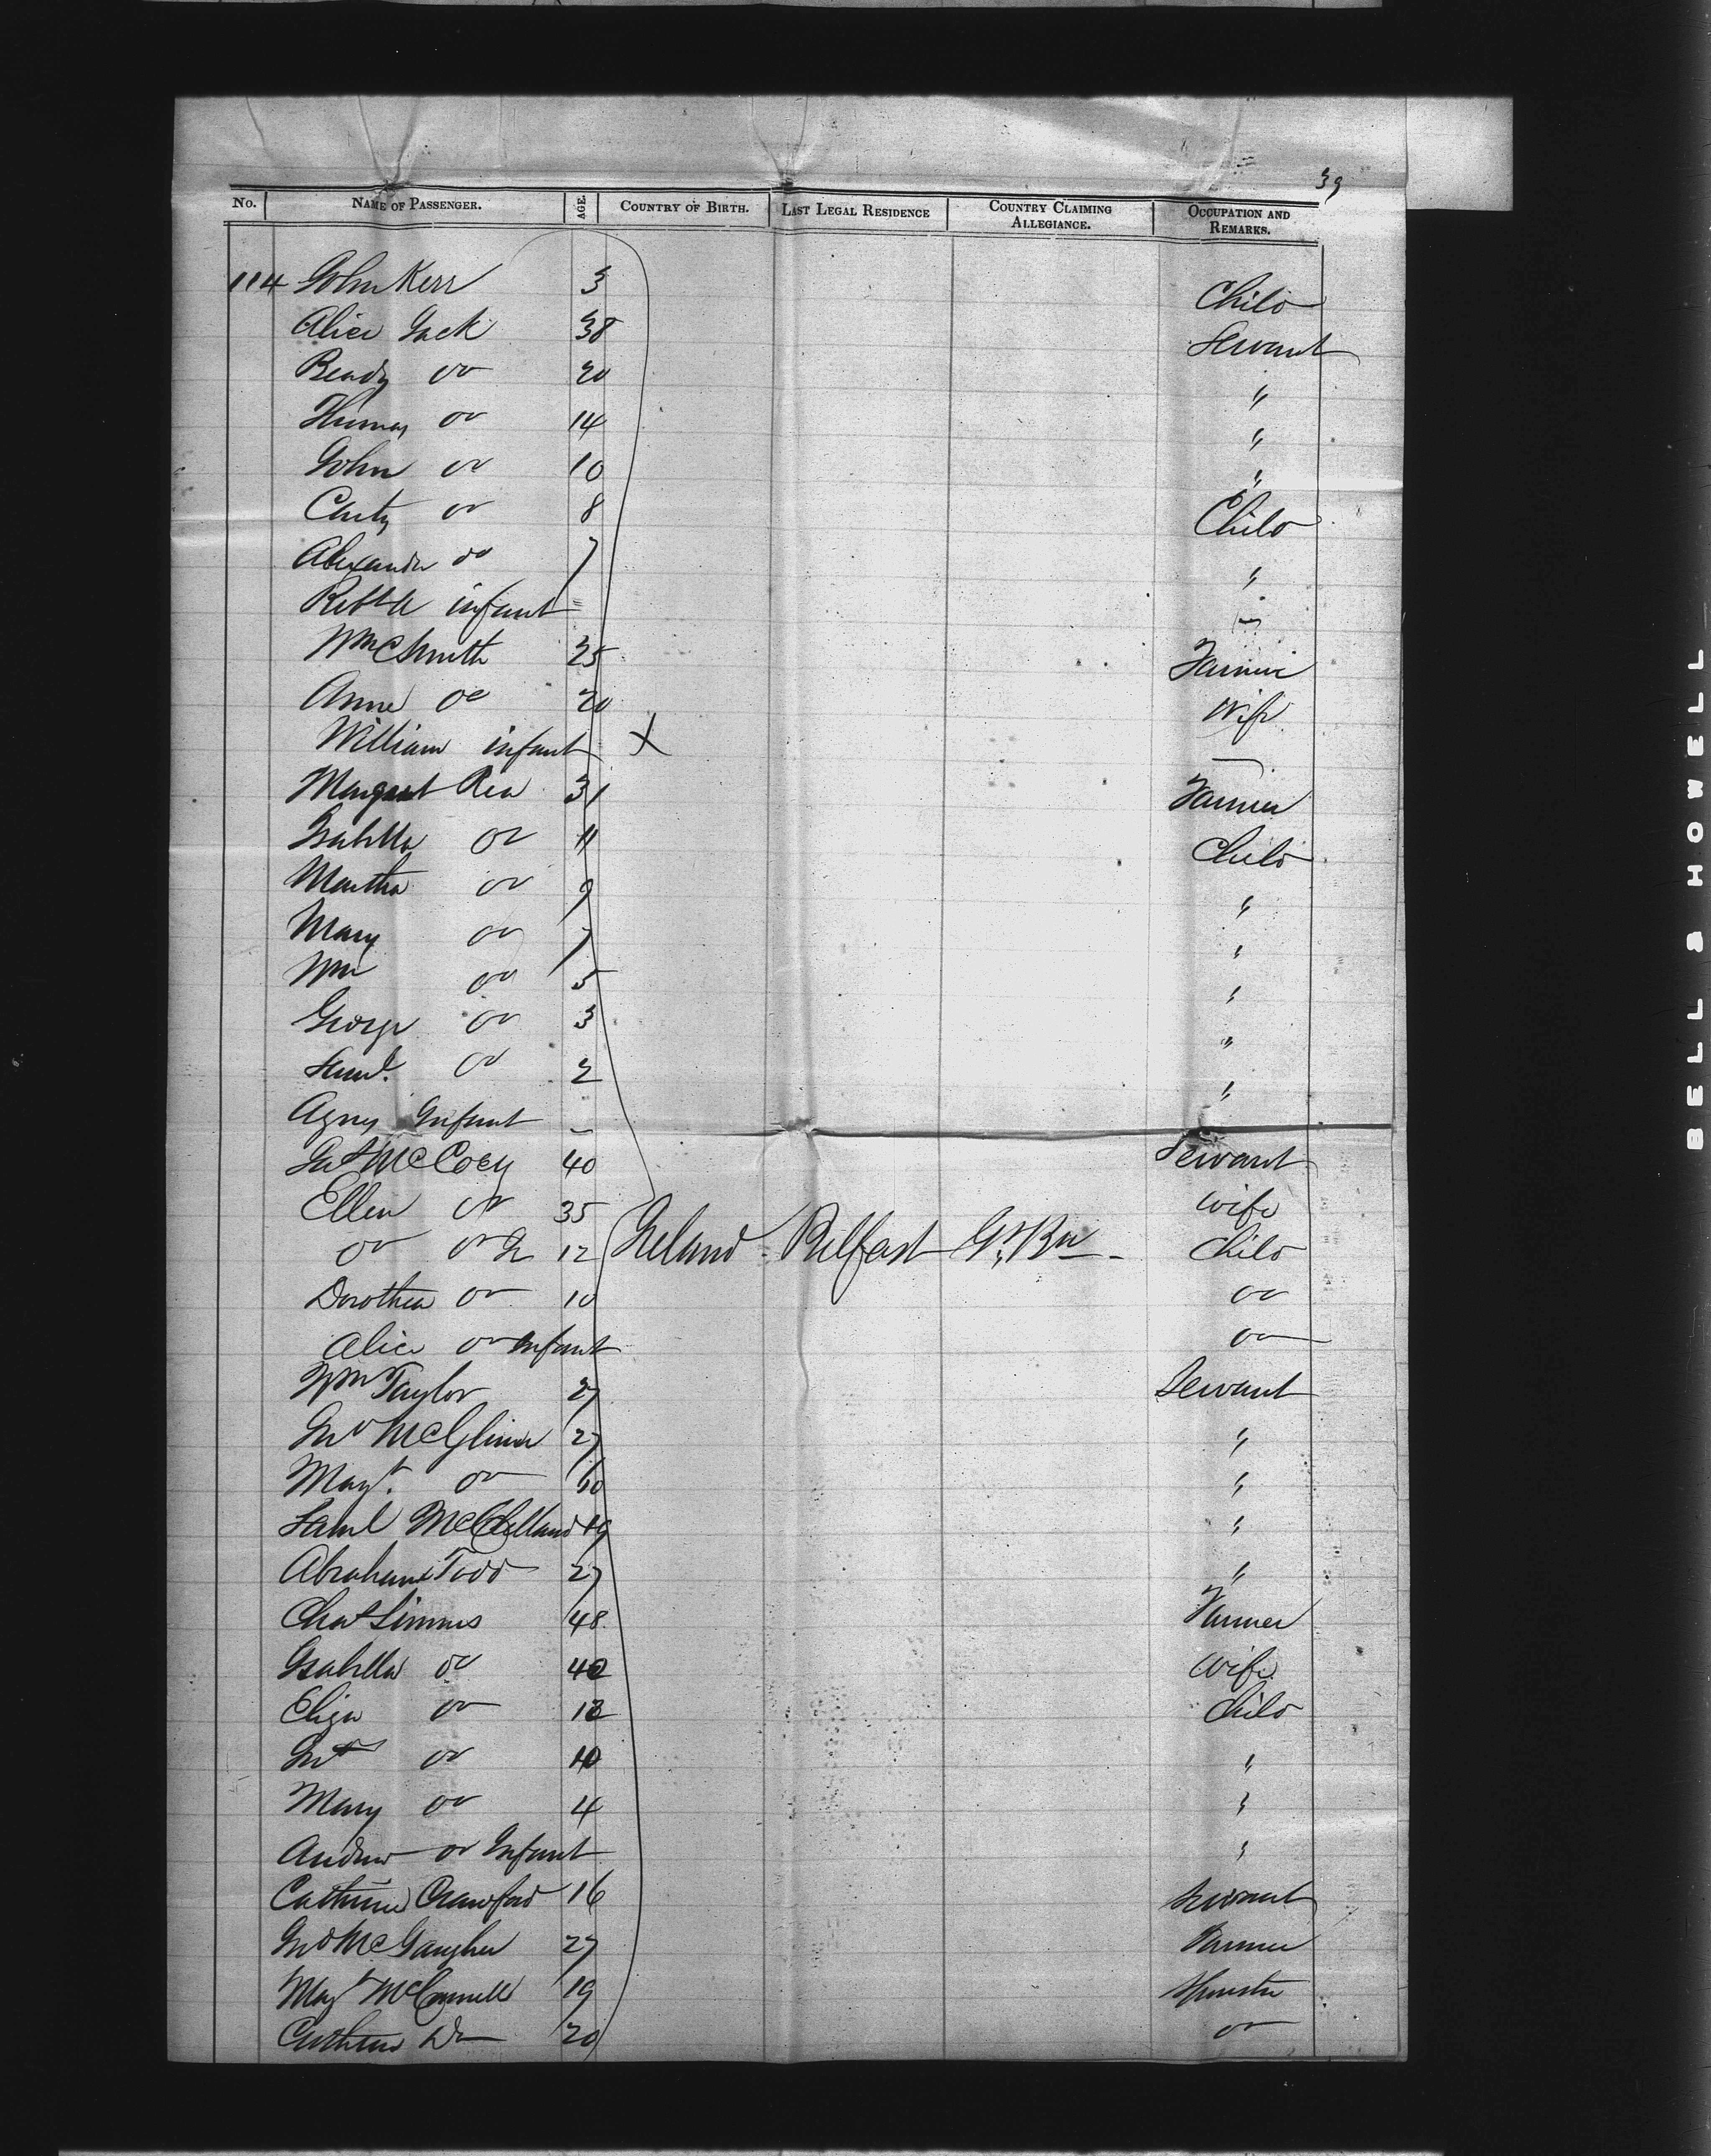 39
No. NAME OF PASSENGER. AGE. COUNTRY OF BIRTH. LAST LEGAL RESIDENCE COUNTRY CLAIMING ALLEGIANCE. OCCUPATION AND REMARKS.
114 John Kerr 3 Child
Alice Jack 38 Servant
do 20 "
Thomas do 14 "
John do 10 "
do 8 Child
Alexander do 7 "
infant "
Wm Smith 25 Farmer
Anne do 20 Wife
William infant X
Margaret Rea 31 Farmer
Isabella do 11 Child
Martha do 9 "
Mary do 7 "
Wm do 5 "
George do 3 "
Saml. do 2 "
Agnes Infant —
McCoey 40 Servant
Ellen do 35 Wife
do do 12 Ireland Belfast Child
Dorothea do 10 do
Alice do Infant do
Wm Taylor 27 Servant
Jno 27 "
Margt. do "
Saml McClelland 19 "
Abraham Todd 27 "
Simms 48 Farmer
Isabella do Wife
Eliza do Child
do "
Mary do 4 "
Andrew do Infant "
Catherine Crawford 16 Servant
Jno 27 Farmer
Margt 19 Spinster
Do 20 do
BELL & HOWELL